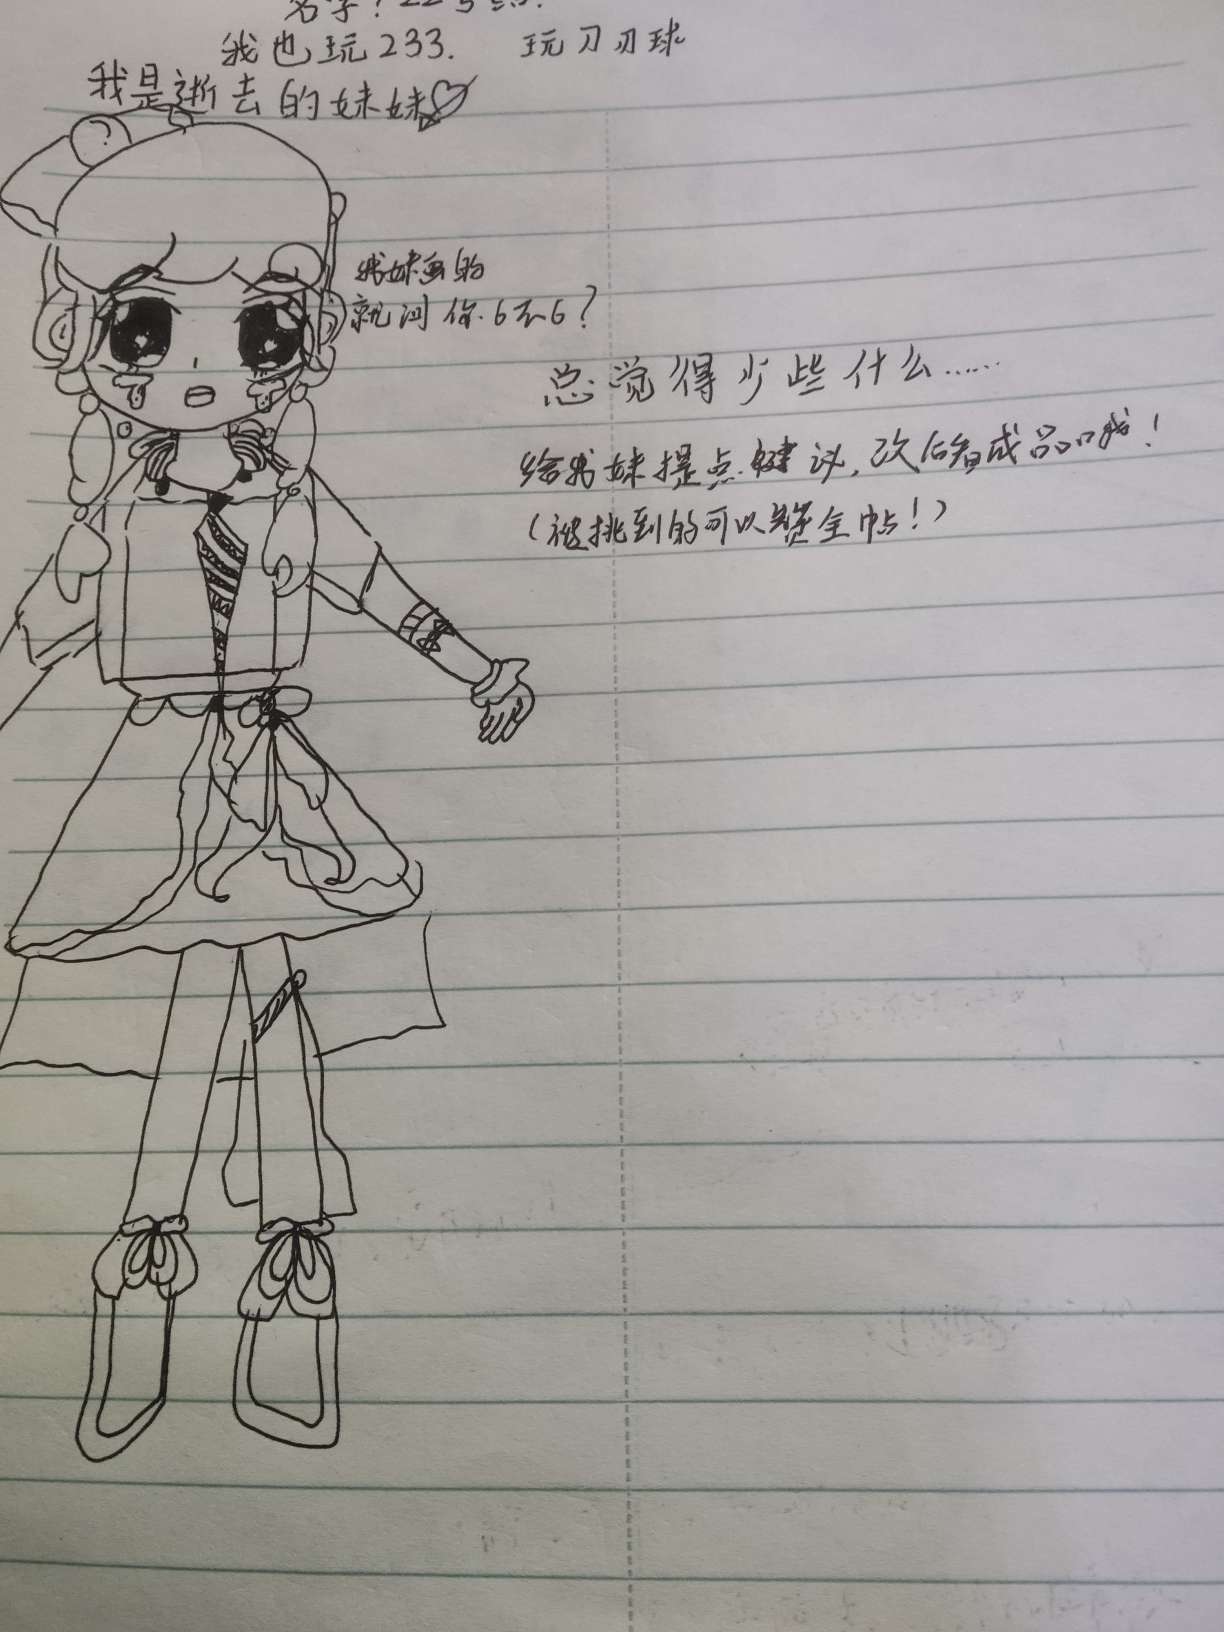 我也玩233. 玩刀刃球
我是逝去的妹妹
?
我妹画的
就问你.6不6?
总觉得少些什么……
给我妹提点建议,改后看成品哦!
(被挑到的可以赞全帖!)